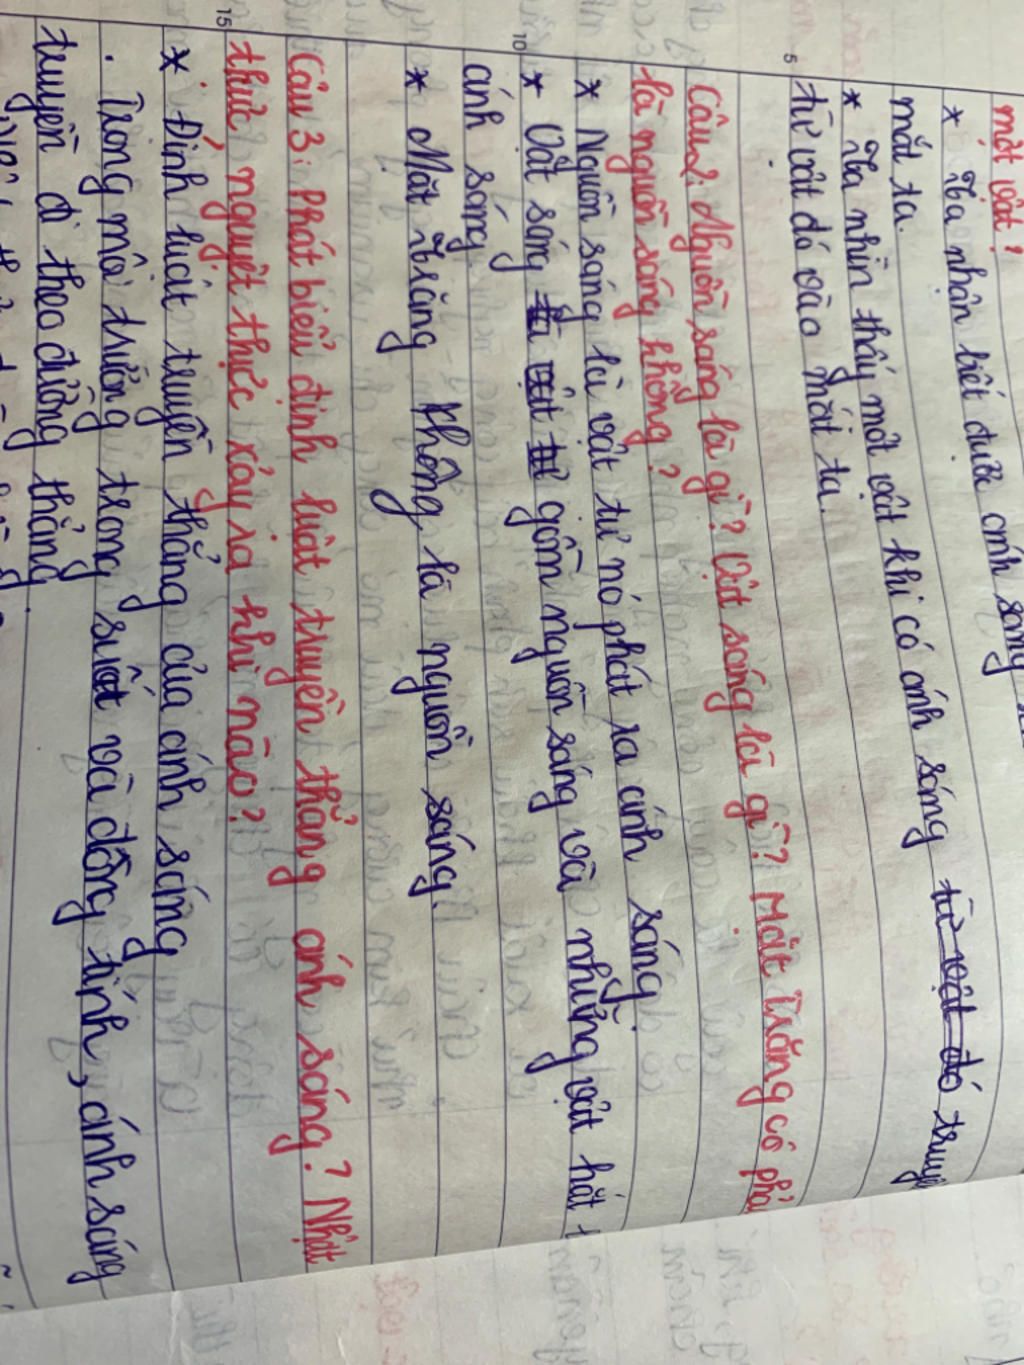 một vật?
* Ta nhận biết được ánh sáng
mắt ta.
* Ta nhìn thấy một vật khi có ánh sáng từ vật đó truyền
từ vật đó vào mắt ta.
Câu 2: Nguồn sáng là gì? Vật sáng là gì? Mặt Trăng có phải
là nguồn sáng không?
* Nguồn sáng là vật tự nó phát ra ánh sáng.
* Vật sáng là vật gồm nguồn sáng và những vật hắt
ánh sáng
* Mặt Trăng không là nguồn sáng.
Câu 3: Phát biểu định luật truyền thẳng ánh sáng? Nhật
thực, nguyệt thực xảy ra khi nào?
* Định luật truyền thẳng của ánh sáng
. Trong môi trường trong suốt và đồng tính, ánh sáng
truyền đi theo đường thẳng.
5
10
15